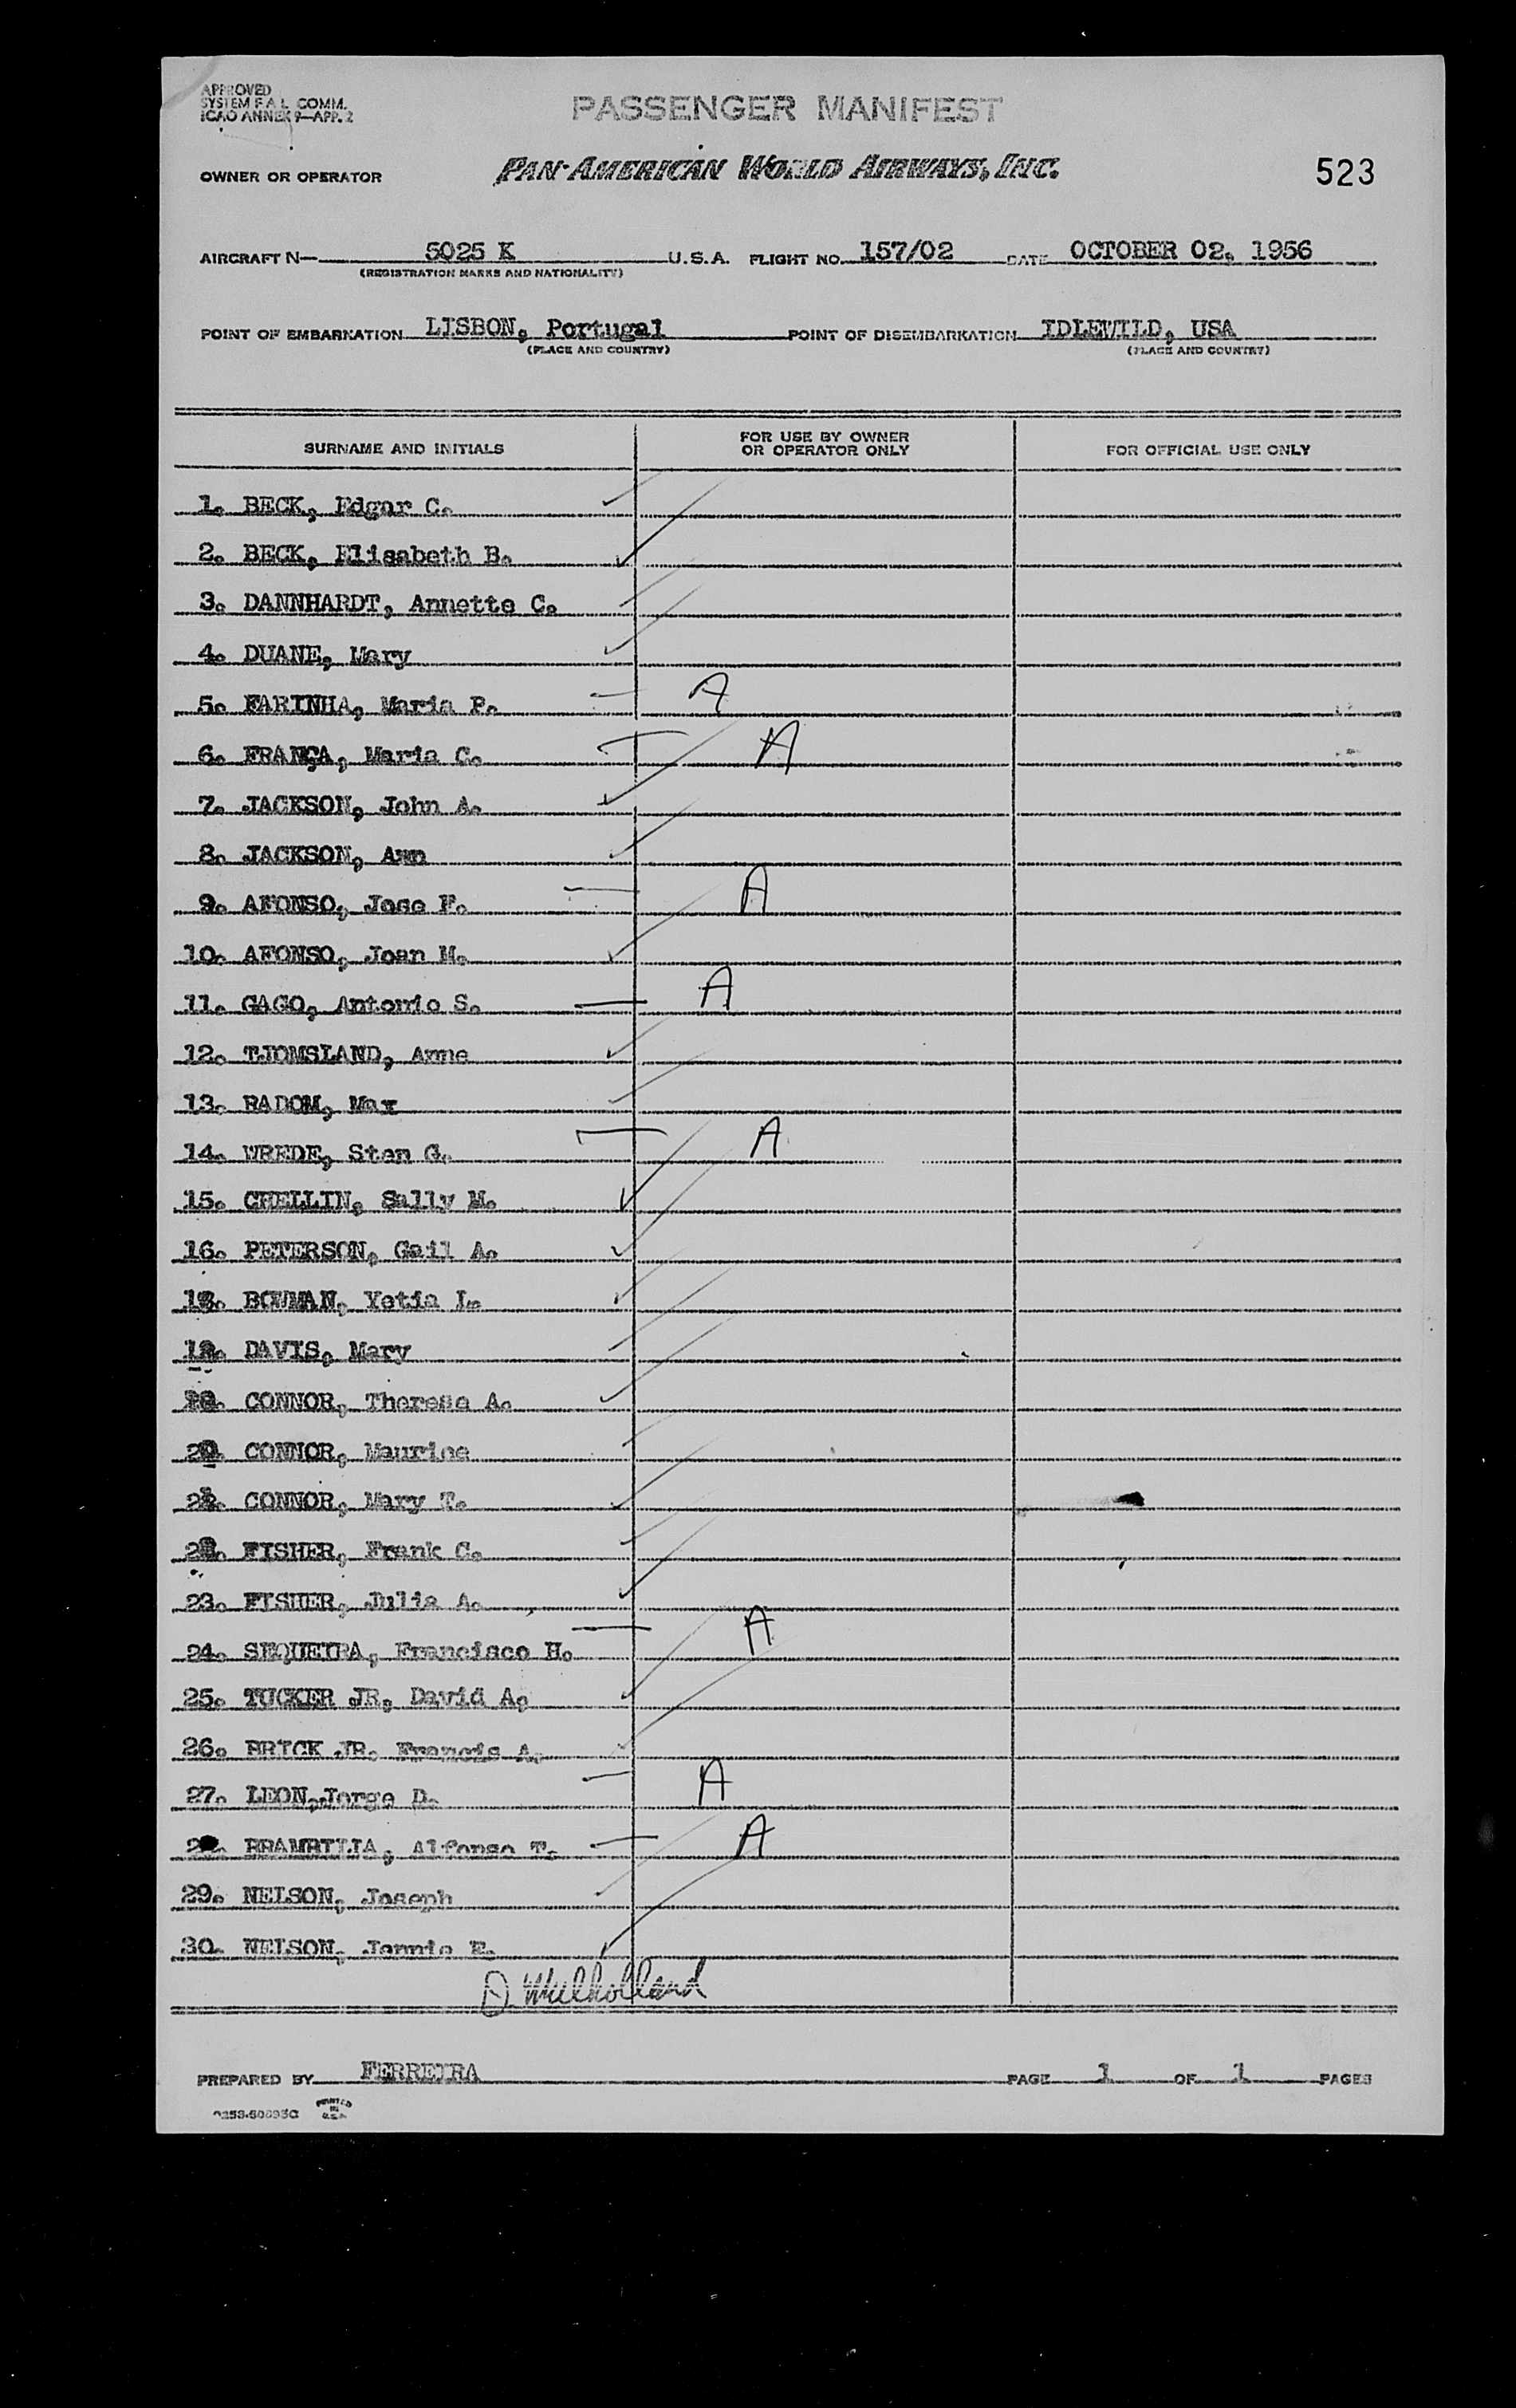 APPROVED
SYSTEM F A L COMM.
ICAO ANNEX 9—APP. 2
PASSENGER MANIFEST
OWNER OR OPERATOR PAN-AMERICAN WORLD AIRWAYS, INC. 523
AIRCRAFT N— 5025 K U.S.A. FLIGHT NO. 157/02 DATE OCTOBER 02, 1956
(REGISTRATION MARKS AND NATIONALITY)
POINT OF EMBARKATION LISBON, Portugal POINT OF DISEMBARKATION IDLEWILD, USA
(PLACE AND COUNTRY) (PLACE AND COUNTRY)
SURNAME AND INITIALS FOR USE BY OWNER OR OPERATOR ONLY FOR OFFICIAL USE ONLY
1. BECK, Edgar C.
2. BECK, Elisabeth B.
3. DANNHARDT, Annette C.
4. DUANE, Mary
5. FARINHA, Maria P. A
6. FRANÇA, Maria C. A
7. JACKSON, John A.
8. JACKSON, Ann
9. AFONSO, Jose F. A
10. AFONSO, Joan M.
11. GAGO, Antonio S. A
12. TJOMSLAND, Anne
13. RADOM, Max
14. WREDE, Sten G. A
15. CHELLIN, Sally M.
16. PETERSON, Gail A.
17. BOWMAN, Yetia I.
18. DAVIS, Mary
19. CONNOR, Theresa A.
20. CONNOR, Maurice
21. CONNOR, Mary T.
22. FISHER, Frank C.
23. FISHER, Julia A.
24. SEQUEIRA, Francisco H. A
25. TUCKER JR, David A.
26. BRICK JR. Francis A.
27. LEON, Jorge D. A
28. BRAMBILIA, Alfonso T. A
29. NELSON, Joseph
30. NELSON, Jennie E.
D. Mulholland
PREPARED BY FERREIRA PAGE 1 OF 1 PAGES
PRINTED IN U.S.A.